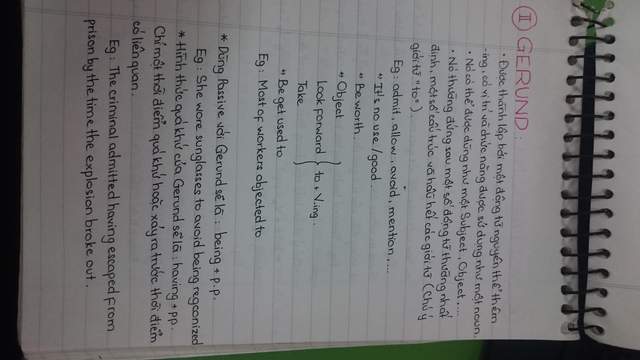 II GERUND:
• Được thành lập bởi một động từ nguyên thể thêm
-ing, có vị trí và chức năng được sử dụng như một noun.
• Nó có thể được dùng như một Subject, Object,...
• Nó thường đứng sau một số động từ thường nhất
định, một số cấu trúc và hầu hết các giới từ (Chú ý
giới từ "to")
Eg: admit, allow, avoid, mention,...
" It's no use/good.
" Be worth.
" Object
Look forward } to + V.ing.
Take
" Be get used to
Eg: Most of workers objected to
* Dùng Passive với Gerund sẽ là: being + p.p.
Eg: She wore sunglasses to avoid being regconized
* Hình thức quá khứ của Gerund sẽ là: having + pp.
Chỉ một thời điểm quá khứ hoặc xảy ra trước thời điểm
có liên quan.
Eg: The criminal admitted having escaped from
prison by the time the explosion broke out.